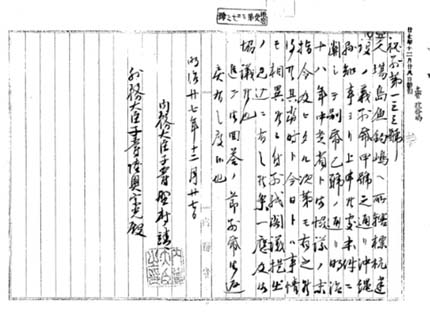 秘別第一三三號
久場島魚釣嶋ヘ所轄標杭建
設之義別紙甲號之通リ沖縄
縣知事ヨリ上申候處本件ニ
關シテハ別紙乙號ノ通リ明治
十八年中貴省ト御協議ノ末
指令及ヒタル次第モ有之候
得共其當時ト今日トハ事情
モ相異候ニ付別紙閣議提出
ノ見込ニ有之候條一應及御
協議候也
追テ御回答ノ節別紙御返
戻有之度候也
明治廿七年十二月廿七日
内務大臣子爵野村靖
外務大臣子爵陸奥宗光殿